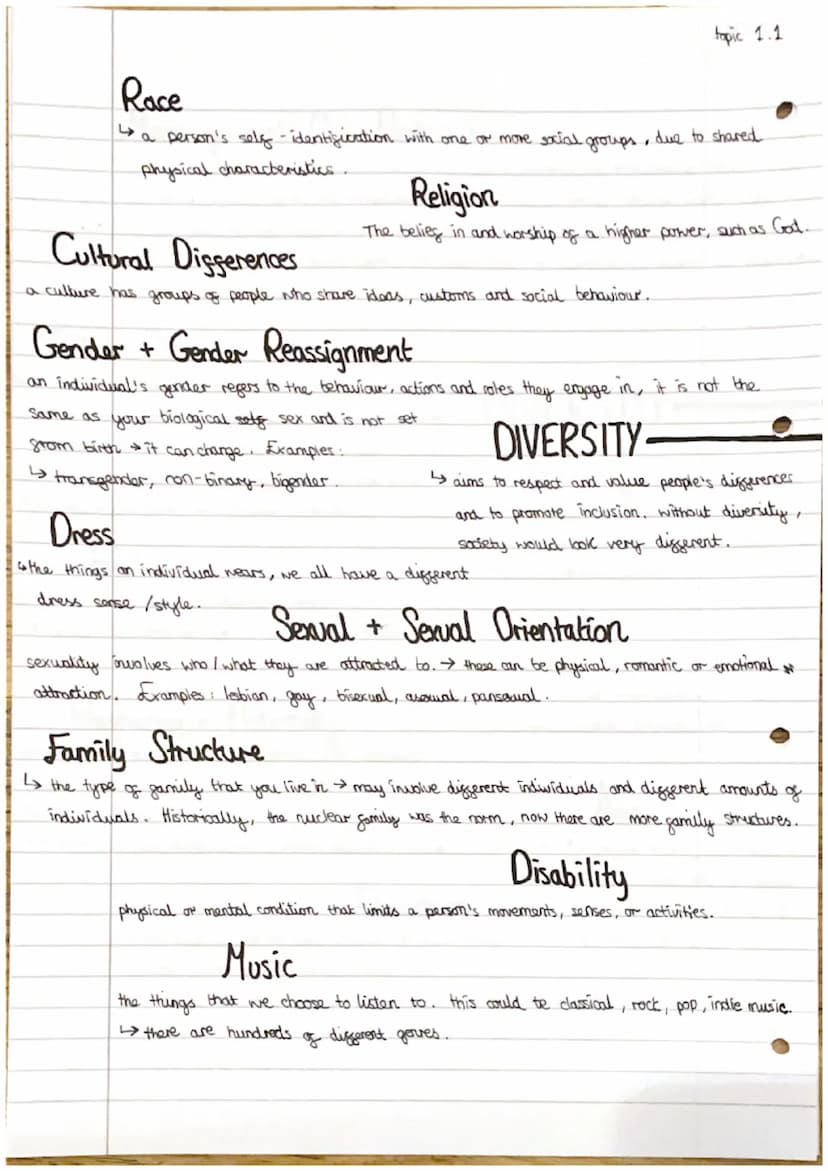 topic 1.1
Race
↳ a person's self-identification with one or more social groups, due to shared
physical characteristics.
Religion
The belief in and worship of a higher power, such as God.
Cultural Differences
a culture has groups of people who share ideas, customs and social behaviour.
Gender + Gender Reassignment
an individual's gender refers to the behaviour, actions and roles they engage in, it is not the
same as your biological sex and is not set
from birth → it can change. Examples:
↳ transgender, non-binary, bigender.
DIVERSITY
↳ aims to respect and value people's differences
and to promote inclusion. without diversity,
society would look very different.
Dress
↳ the things an individual wears, we all have a different
dress sense / style.
Sexual + Sexual Orientation
sexuality involves who / what they are attracted to. → these can be physical, romantic or emotional
attraction. Examples: lesbian, gay, bisexual, asexual, pansexual.
Family Structure
↳ the type of family that you live in → may involve different individuals and different amounts of
individuals. Historically, the nuclear family was the norm, now there are more family structures.
Disability
physical or mental condition that limits a person's movements, senses, or activities.
Music
the things that we choose to listen to. this could be classical, rock, pop, indie music.
↳ there are hundreds of different genres.